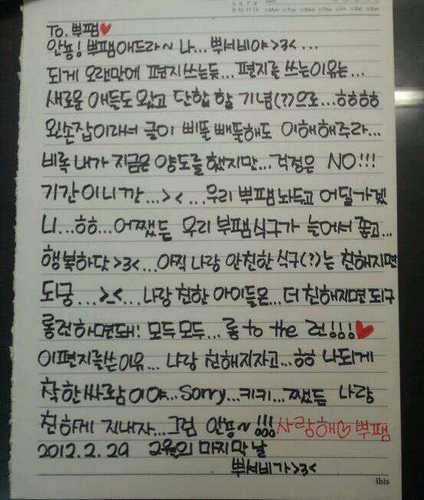 To. 뿌팸♥
안뇽! 뿌팸애드라~ 나... 뿌서비야>3<...
되게 오랜만에 편지쓰는듯... 편지를 쓰는이유는...
새로운 애들도 왔고 단합 할 기념(??)으로...ㅎㅎㅎㅎ
왼손잡이라서 글이 삐뚤빼뚤해도 이해해주라...
비록 내가 지금은 양도를 했지만... 걱정은 NO!!!
기간이니깐...><...우리 뿌팸 놔두고 어딜가겠
니...ㅎㅎ...어쨌든 우리 부팸식구가 늘어서 좋고...
행복하닷>3<...아직 나랑 안친한 식구(?)는 친해지면
되궁...><...나랑 친한 아이들은...더 친해지면되구
롱런하면돼! 모두모두...롱 to the 런!!!♥
이편지를쓴이유... 나랑 친해지자고...ㅎㅎ 나되게
착한싸람이야...sorry...키키...쨌든 나랑
친하게 지내자...그럼 안뇽~!!! 사랑해♡뿌팸
2012.2.29 2월의 마지막날
뿌서비가>3<
ibis